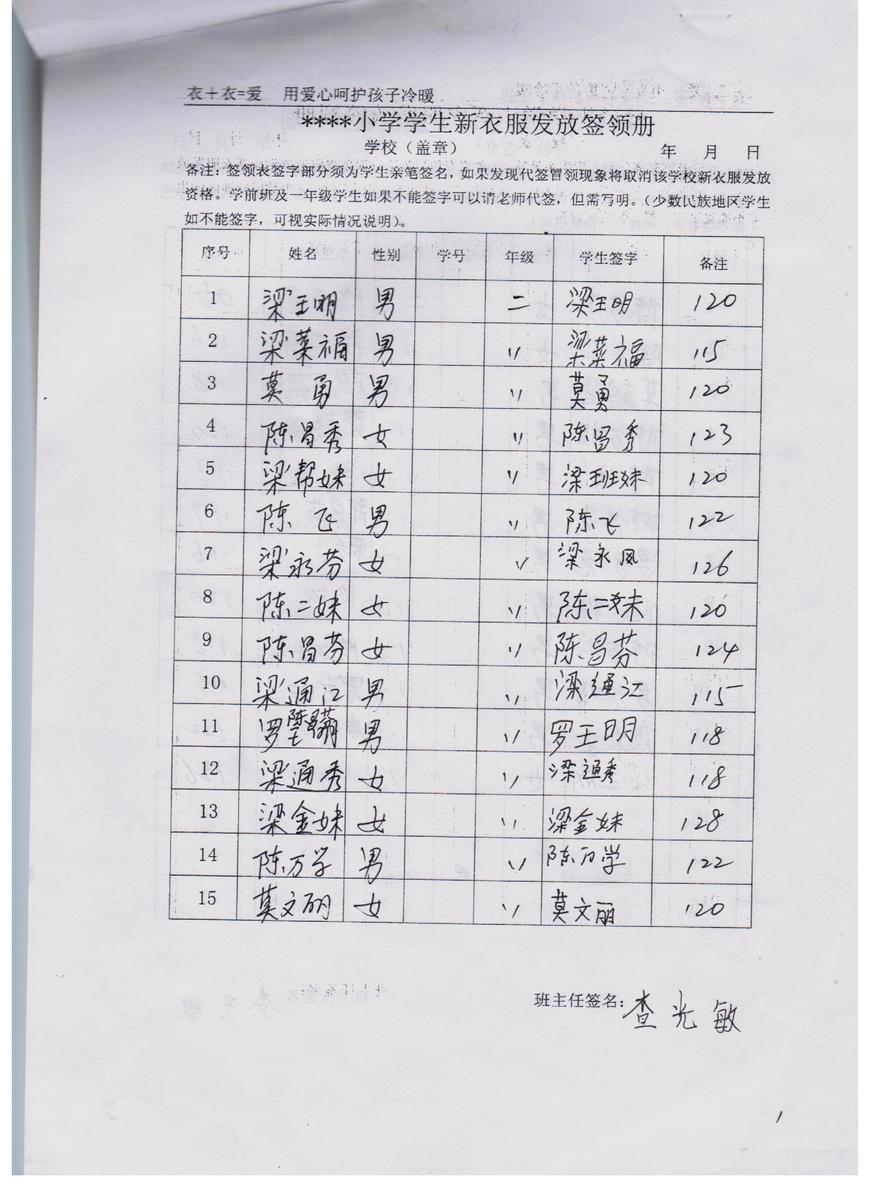 衣＋衣=爱 用爱心呵护孩子冷暖
****小学学生新衣服发放签领册
学校（盖章） 年 月 日
备注：签领表签字部分须为学生亲笔签名，如果发现代签冒领现象将取消该学校新衣服发放
资格。学前班及一年级学生如果不能签字可以请老师代签，但需写明。（少数民族地区学生
如不能签字，可视实际情况说明）。
序号 姓名 性别 学号 年级 学生签字 备注
1 梁王明 男 二 梁王明 120
2 梁菜福 男 〃 梁菜福 115
3 莫勇 男 〃 莫勇 120
4 陈昌秀 女 〃 陈昌秀 123
5 梁帮妹 女 〃 梁班妹 120
6 陈飞 男 〃 陈飞 122
7 梁永芬 女 〃 梁永凤 126
8 陈二妹 女 〃 陈二妹 120
9 陈昌芬 女 〃 陈昌芬 124
10 梁通江 男 〃 梁通江 115
11 罗 男 〃 罗王明 118
12 梁通秀 女 〃 梁通秀 118
13 梁金妹 女 〃 梁金妹 128
14 陈万学 男 〃 陈万学 122
15 莫文丽 女 〃 莫文丽 120
班主任签名：查光敏
1